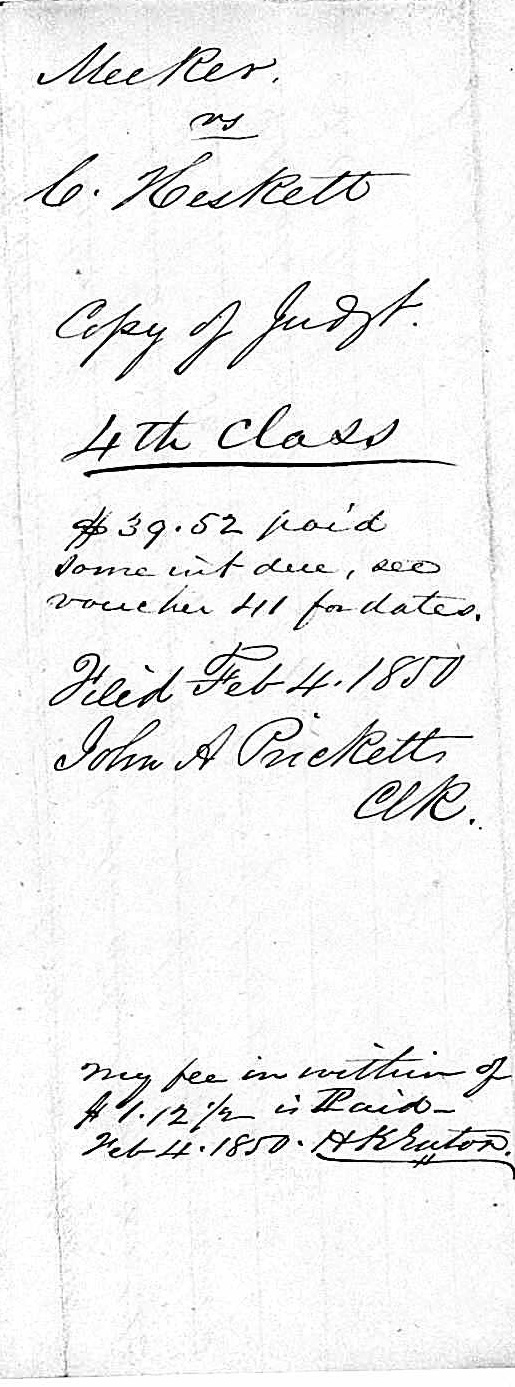 Meeker.
vs
C. Heskett
Copy of Judgt.
4th Class
$39.52 paid
some int due, see
voucher 411 for dates.
Filed Feb 4. 1850
John A Prickett
Clk.
my fee in within of
$1.12 1/2 is Paid-
Feb 4. 1850. H K Eaton.